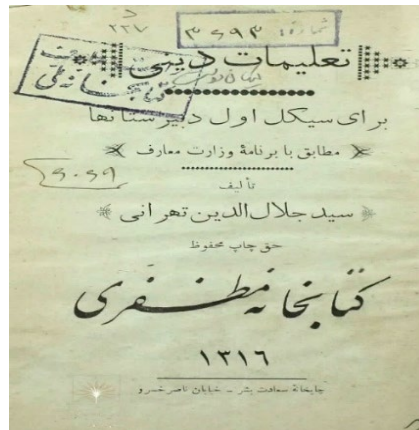 شماره ۳۶۹۳
د
۲۲۷
تعلیمات دینی
کتابخانه ملی
برای سیکل اول دبیرستانها
مطابق با برنامهٔ وزارت معارف
تألیف
سید جلال‌الدین تهرانی
حق چاپ محفوظ
کتابخانه مظفری
۱۳۱۶
چاپخانهٔ سعادت بشر ــ خیابان ناصرخسرو